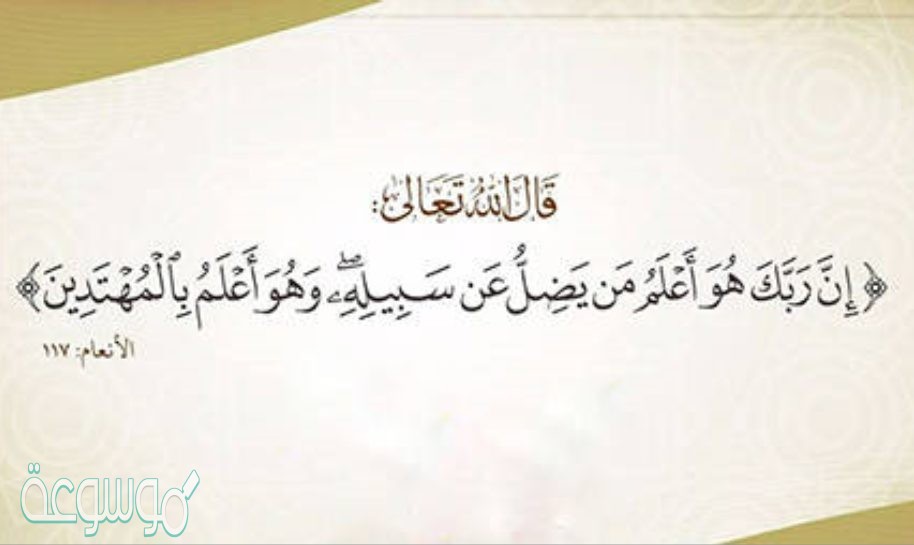 قَالَ اللهُ تَعَالَى:
﴿إِنَّ رَبَّكَ هُوَ أَعْلَمُ مَن يَضِلُّ عَن سَبِيلِهِۦۖ وَهُوَ أَعْلَمُ بِٱلْمُهْتَدِينَ﴾
الأنعام: ١١٧
موسوعة